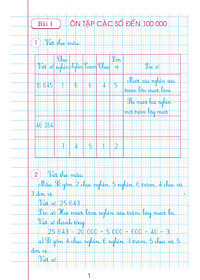 Bài 1 ÔN TẬP CÁC SỐ ĐẾN 100 000
1 Viết theo mẫu.
Viết số Chục nghìn Nghìn Trăm Chục Đơn vị Đọc số
16 645 1 6 6 4 5 Mười sáu nghìn sáu trăm bốn mươi lăm
Ba mươi hai nghìn một trăm bảy mươi
40 354
7 4 5 1 2
2 Viết theo mẫu.
Mẫu: R gồm 2 chục nghìn, 5 nghìn, 6 trăm, 4 chục và
3 đơn vị.
Viết số: 25 643
Đọc số: Hai mươi lăm nghìn sáu trăm bốn mươi ba.
Viết số thành tổng:
25 643 = 20 000 + 5 000 + 600 + 40 + 3
a) R gồm 4 chục nghìn, 6 nghìn, 3 trăm, 5 chục và 5
đơn vị.
Viết số:
1